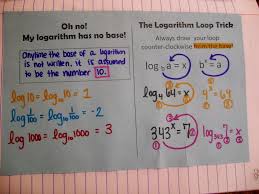 Oh no!
My logarithm has no base!
Anytime the base of a logarithm
is not written, it is assumed
to be the number 10.
log 10 = log₁₀ 10 = 1
log 1/100 = log₁₀ 1/100 = -2
log 1000 = log₁₀ 1000 = 3
The Logarithm Loop Trick
Always draw your loop
counter-clockwise from the base!
log_b a = x   bˣ = a
log₄ 64 = x   4ˣ = 64
343ˣ = 7   log₃₄₃ 7 = x